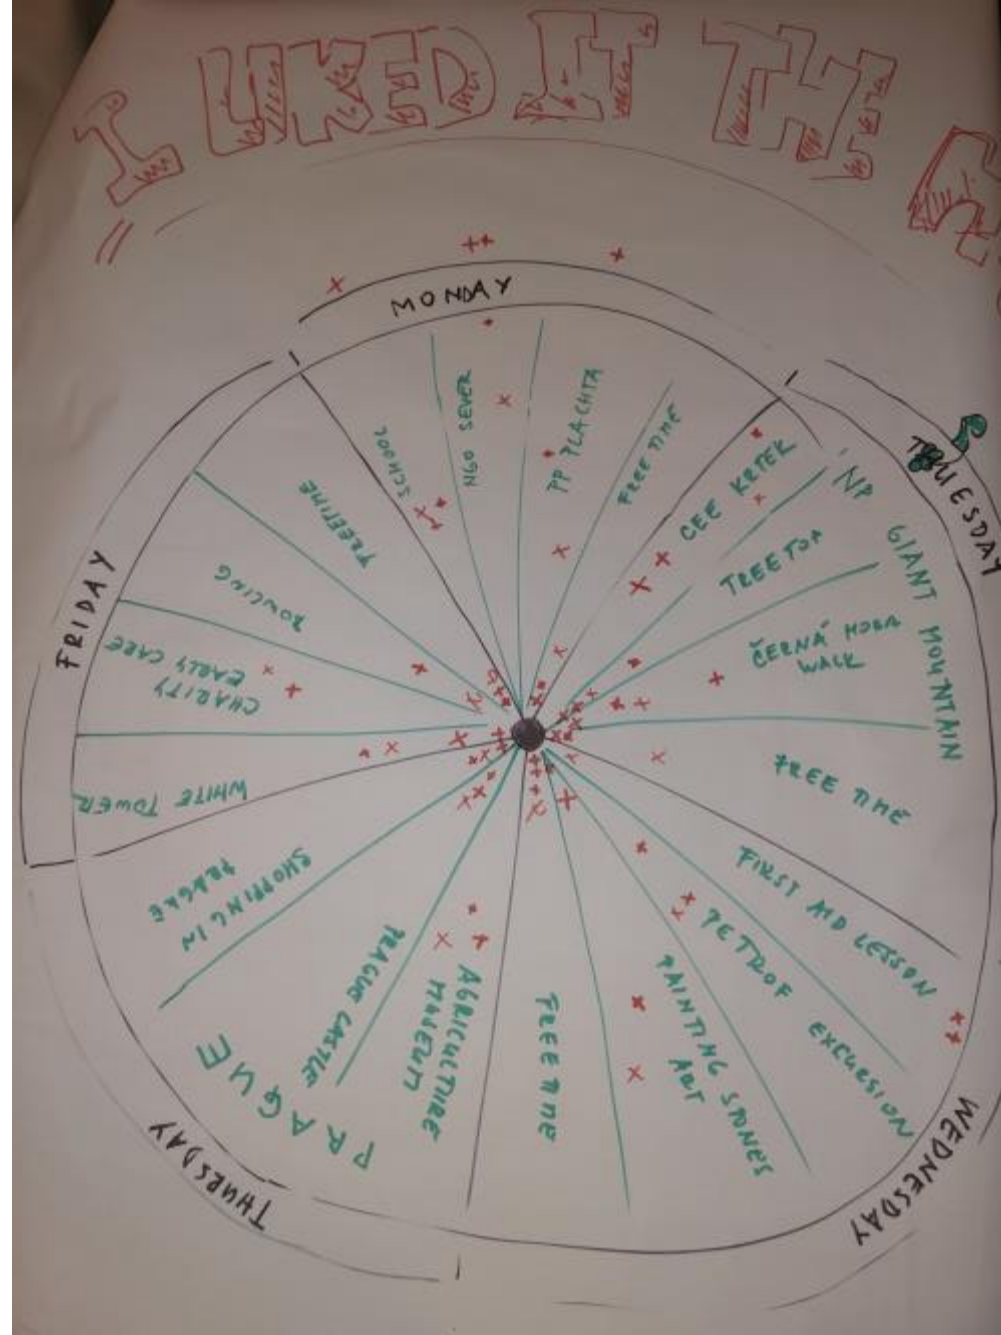 I LIKED IT THE
MONDAY
SCHOOL
NGO SEVER
PP PLACHTA
FREE TIME
TUESDAY
CEE KRTEK
NP GIANT MOUNTAIN
TREE TOP
ČERNÁ HORA
WALK
FREE TIME
WEDNESDAY
FIRST AID LESSON
PETROF EXCURSION
PAINTING STONES
ART
FREE TIME
THURSDAY
PRAGUE
AGRICULTURE
MUSEUM
PRAGUE CASTLE
SHOPPING IN
PRAGUE
FRIDAY
WHITE TOWER
CHARITY
EARLY CARE
BOWLING
FREETIME